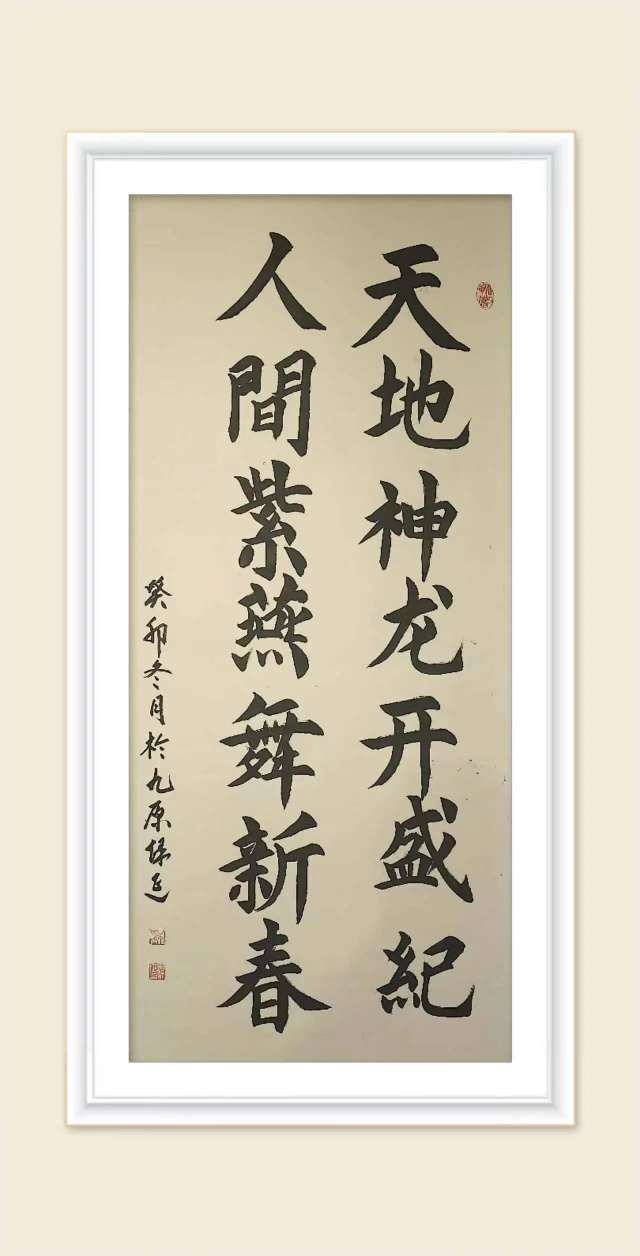 天地神龙开盛纪
人間紫燕舞新春
癸卯冬月於九原